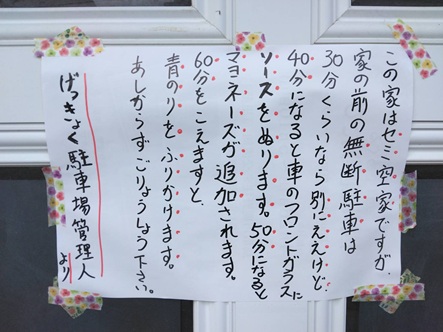 この家はセミ空家ですが、
家の前の無断駐車は
30分くらいなら別にええけど、
40分になると車のフロントガラスに
ソースをぬります。50分になると
マヨネーズが追加されます。
60分をこえますと、
青のりをふりかけます。
あしからずごりょうしょう下さい。
げっきょく駐車場管理人
より